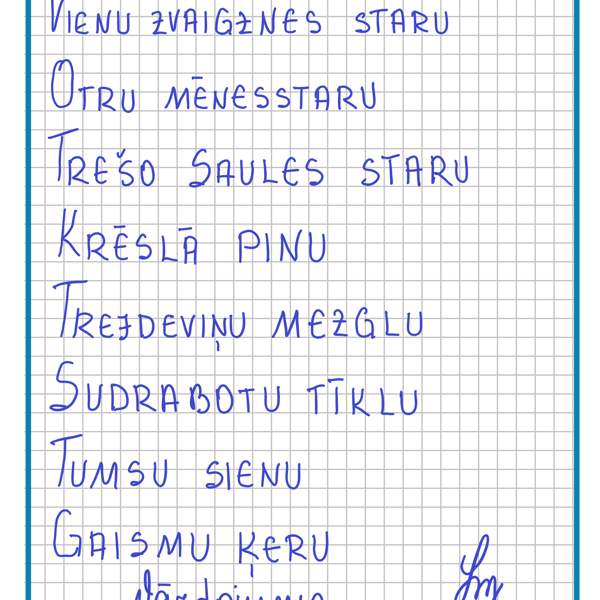 Vienu zvaigznes staru
Otru mēnesstaru
Trešo Saules staru
Krēslā pinu
Trejdeviņu mezglu
Sudrabotu tīklu
Tumsu sienu
Gaismu ķeru